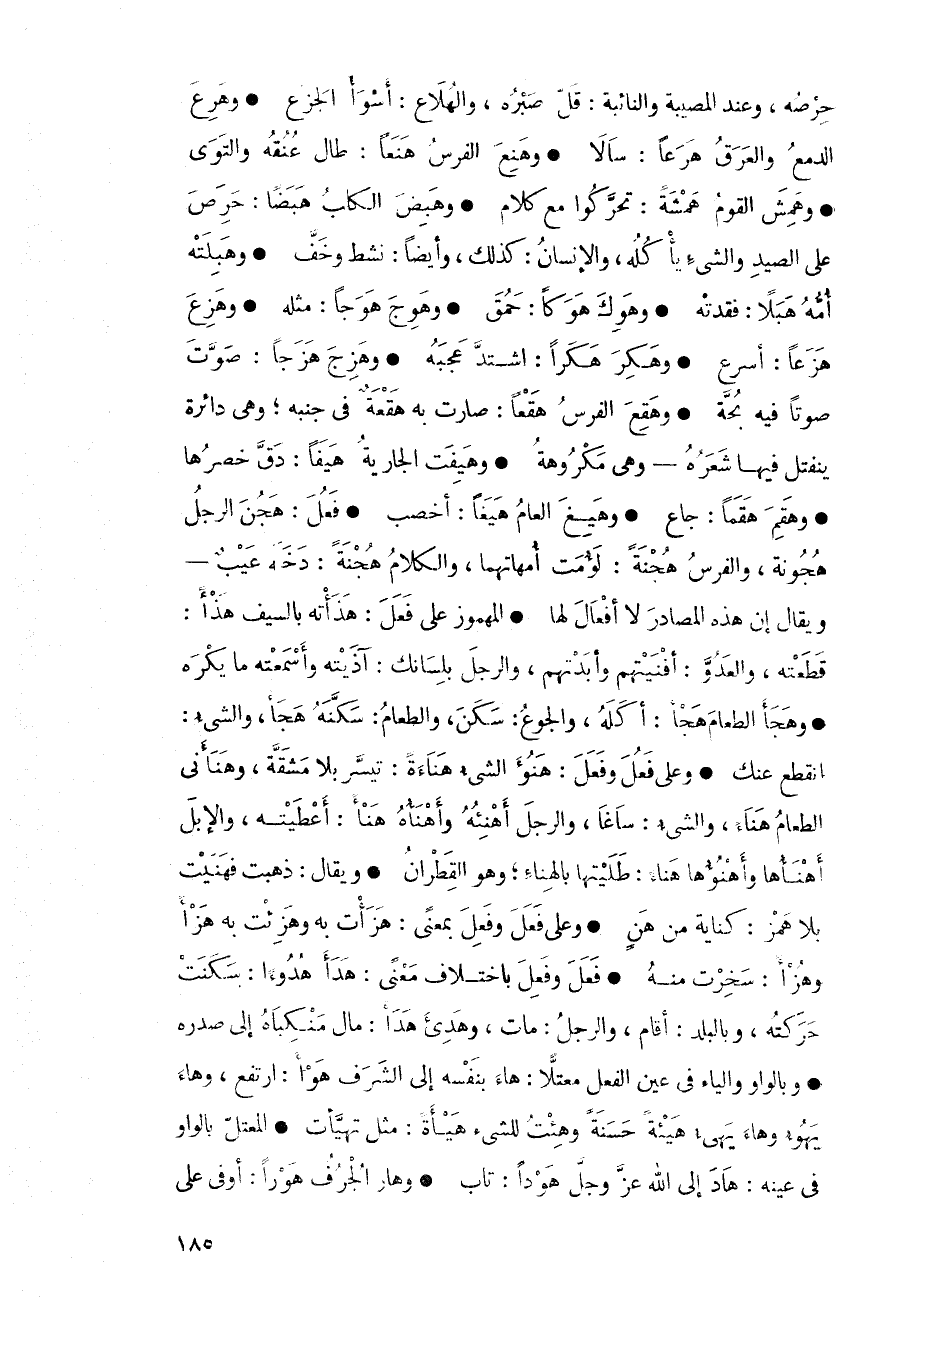 حِرْصُه ، وعند المصيبة والنائبة : قَلّ صَبْرُه ، والهُلَاع : أَسْوَأُ الجزع ● وهَرِعَ
الدمعُ والعَرَقُ هَرَعاً : سالَا ● وهَنِعَ الفرسُ هَنَعاً : طال عُنُقهُ والتَوَى
● وهَمِشَ القومُ هَمْشَةً : تحرَّكُوا مع كلام ● وهَبِصَ الكلبُ هَبَصًا : حَرَِصَ
على الصيدِ والشىءِ يأْكُلُه، والإنسانُ : كذلك ، وأيضاً : نشط وخَفَّ ● وهَبِلَتْه
أُمُّهُ هَبَلًا : فقدتْه ● وهَوِكَ هَوَكاً : حَمُقَ ● وهَوِجَ هَوَجاً : مثله ● وهَزِعَ
هَزَعاً : أسرع ● وهَكِرَ هَكَراً : اشتدَّ عَجَبُه ● وهَزِجَ هَزَجاً : صَوَّتَ
صوتاً فيه بُحَّة ● وهَقِعَ الفرسُ هَقْعاً : صارت به هَقْعَةٌ فى جنبه ؛ وهى دائرة
ينفتل فيها شَعَرُهُ — وهى مَكْرُوهةُ ● وهَيِفَت الجاريةُ هَيَفاً : دَقَّ خصرُها
● وهَقِمَ هَقَماً : جاع ● وهَيِغَ العامُ هَيَغاً : أخصب ● فَعُلَ : هَجُنَ الرجلُ
هُجُونة ، والفرسُ هُجْنَةً : لَؤُمَت أمهاتهما ، والكلامُ هُجْنَةً : دَخَله عَيْبٌ —
ويقال إن هذه المصادرَ لا أفْعَالَ لها ● المهموز على فَعَلَ : هَذَأته بالسيف هَذْأً :
قَطَعْته ، والعَدُوَّ : أفْنَيْتهم وأبَدْتهم ، والرجلَ بلِسَانك : آذَيْته وأسْمَعْته ما يكْرَه
● وهَجَأ الطعامَ هَجْأً : أكَلَهُ ، والجوعُ: سَكَنَ، والطعامُ: سَكَّنَهُ هَجَأ، والشىءُ:
انقطع عنك ● وعلى فَعُلَ وفَعَلَ : هَنُؤَ الشىءُ هَنَاءَةً : تيسَّر بلا مَشَقَّة ، وهَنَأَنى
الطعامُ هَنَاءً ، والشىءُ : سَاغَا ، والرجلَ أهْنِئُهُ وأهْنَأهُ هَنْأً : أعْطَيْته ، والإبلَ
أَهْنَأها وأهْنُؤها هَناءً : طَلَيْتها بالهِناءِ ؛ وهو القَطْرانُ ● ويقال : ذهبت فَهَنَيْت
بلا هَمْز : كناية من هَنٍ ● وعلى فَعَلَ وفَعِلَ بمعنًى : هَزَأْت به وهَزِئْت به هَزْأً
وهُزْأً : سَخِرْت منهُ ● فَعَلَ وفَعِلَ باختلاف مَعْنًى : هَدَأَ هُدُوءًا : سَكَنَتْ
حَرَكَتُه ، وبالبلد : أقام ، والرجلُ : مات ، وهَدِئَ هَدَأً : مال مَنْكِبَاهُ إلى صدره
● وبالواو والياء فى عين الفعل معتلًّا : هاءَ بنَفْسه إلى الشَرَف هَوْءًا : ارتفع ، وهاءَ
يَهُوءُ وهاءَ يَهىءُ هَيْئَةً حَسَنَةً وهِئْتُ للشىءِ هَيْأةً : مثل تهيَّأت ● المعتلّ بالواو
فى عينه : هَادَ إلى الله عزَّ وجلَّ هَوْداً : تاب ● وهار الْجُرُفَ هَوْراً : أوفى على
١٨٥